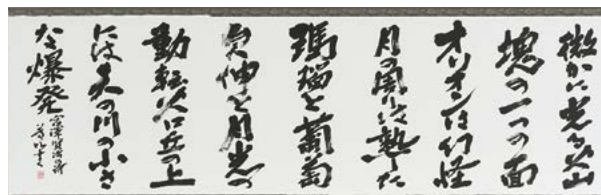 微かに光る火山
塊の一つの面
オリオンは幻怪
月の周りは熟した
瑪瑙と葡萄
欠伸と月光の
動転火口丘の上
には天の川の小さ
な爆発
宮澤賢治